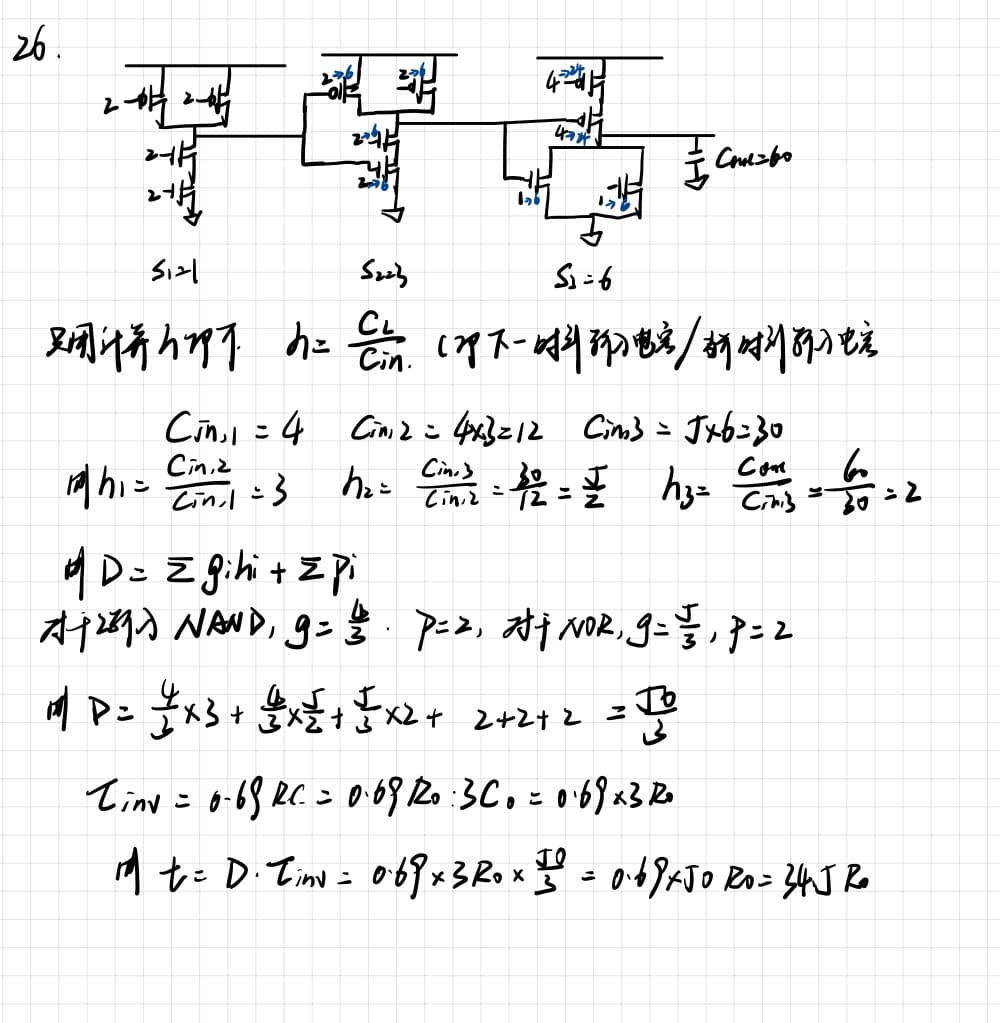 26.
2 2 2→6 2→6 4→24
2 2→6 4→24
2 2→6 1→6 1→6 Cout=60
S₁=1 S₂=3 S₃=6
只用计算h即可. h= CL/Cin. (即下一时刻输入电容/本时刻输入电容
Cin,1 = 4 Cin,2 = 4×3=12 Cin,3 = 5×6=30
则 h₁= Cin,2/Cin,1 = 3 h₂= Cin,3/Cin,2 = 30/12 = 5/2 h₃= Cout/Cin,3 = 60/30 = 2
则 D= Σ gihi + Σ Pi
对于2输入 NAND, g= 4/3 . P=2, 对于 NOR, g= 5/3, P=2
则 D= 4/3 ×3 + 4/3 × 5/2 + 5/3 ×2 + 2+2+2 = 50/3
τinv = 0.69 RC = 0.69 R₀·3C₀ = 0.69×3 R₀
则 t= D·τinv = 0.69×3R₀× 50/3 = 0.69×50 R₀= 34.5 R₀